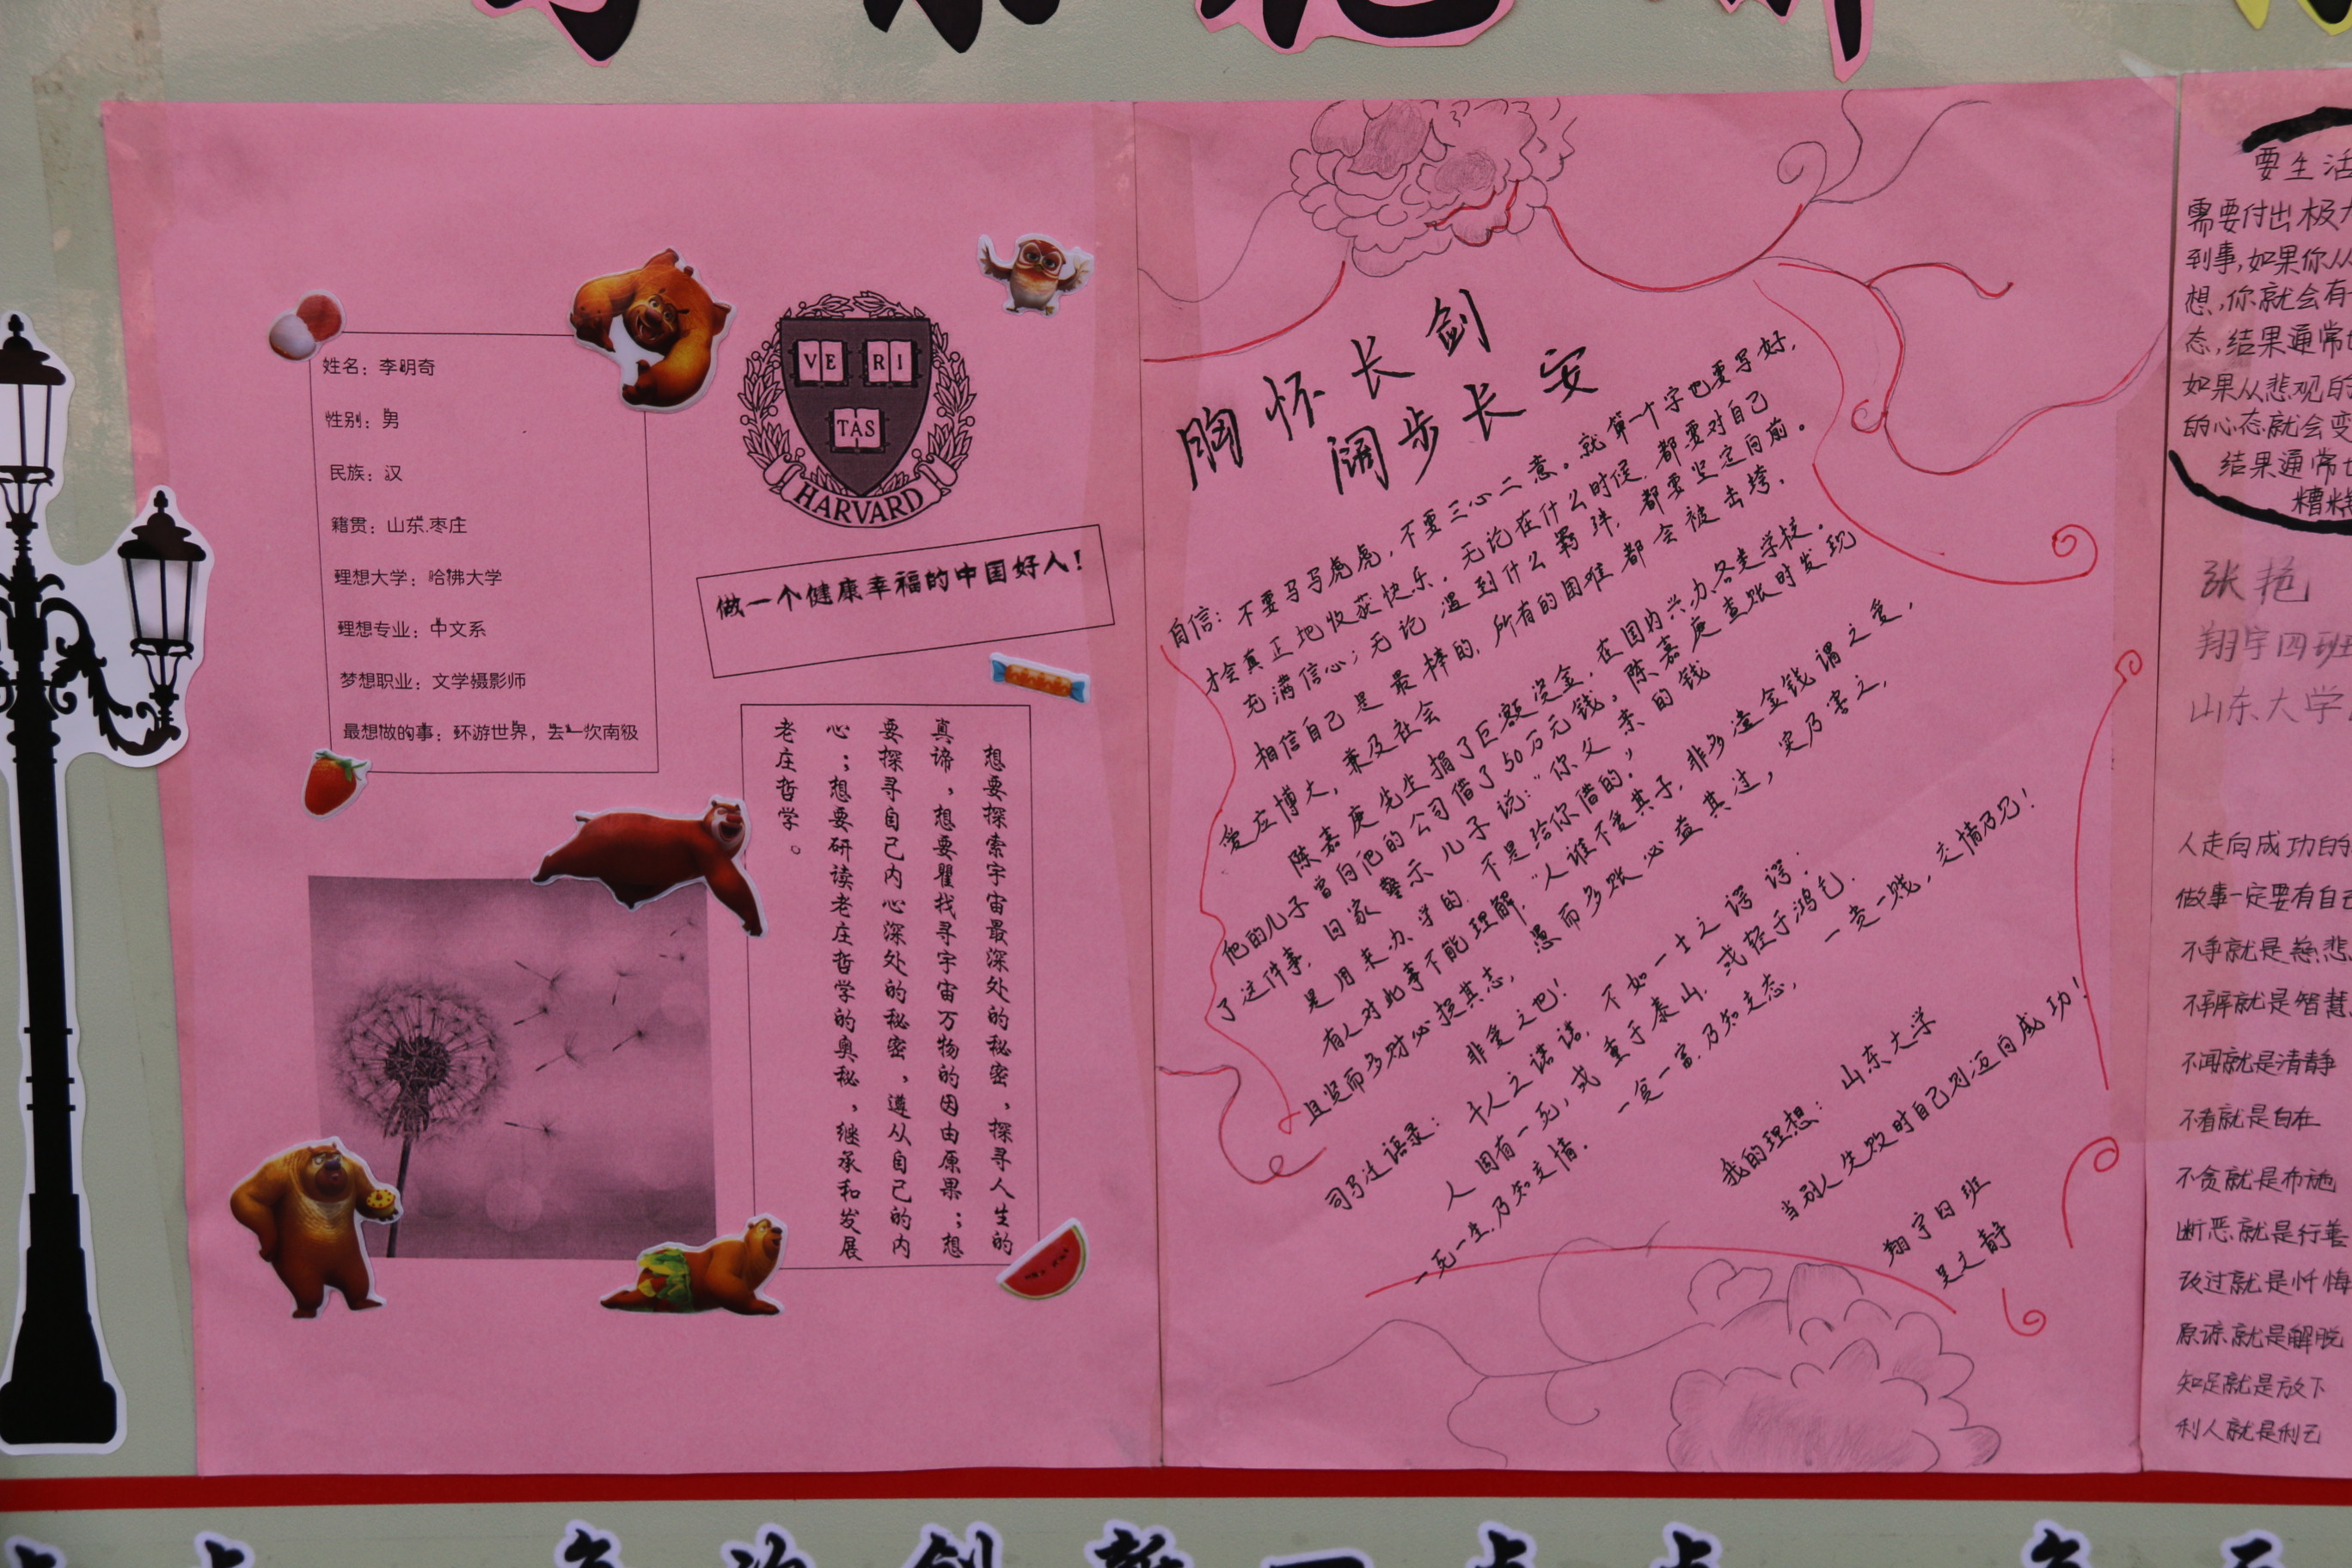 姓名：李明奇
性别：男
民族：汉
籍贯：山东.枣庄
理想大学：哈佛大学
理想专业：中文系
梦想职业：文学摄影师
最想做的事：环游世界，去一次南极
VE RI
TAS
HARVARD
做一个健康幸福的中国好人！
想要探索宇宙最深处的秘密，探寻人生的
真谛，想要瞿找寻宇宙万物的因由原果；想
要探寻自己内心深处的秘密，遵从自己的内
心；想要研读老庄哲学的奥秘，继承和发展
老庄哲学。
胸怀长剑
阔步长安
自信：不要马马虎虎，不要三心二意。就算一个字也要写好，
才会真正地收获快乐。无论在什么时候，都要对自己
充满信心；无论遇到什么羁绊，都要坚定向前。
相信自己是最棒的，所有的困难都会被击垮，
爱应博大，兼及社会
陈嘉庚先生捐了巨额资金，在国内兴办各类学校。
他的儿子曾向他的公司借了50万元钱，陈嘉庚查账时发现
了这件事，回家警示儿子说：“你父亲的钱
是用来办学的，不是给你借的。”
有人对此事不能理解，“人谁不爱其子，非多遗金钱谓之爱，
且贤而多财必损其志，愚而多财必益其过，实乃害之，
非爱之也！
司马迁语录：千人之诺诺，不如一士之谔谔；
人固有一死，或重于泰山，或轻于鸿毛．
一死一生，乃知交情．一贫一富，乃知交态，一贵一贱，交情乃见！
我的理想：山东大学
当别人失败时自己则迈向成功！
翔宇四班
吴文静
要生活
需要付出极大
到事,如果你从
想,你就会有
态,结果通常
如果从悲观的
的心态就会变
结果通常
糟糕
张艳
翔宇四班
山东大学
人走向成功的
做事一定要有自己
不争就是慈悲
不辩就是智慧
不闻就是清静
不看就是自在
不贪就是布施
断恶就是行善
改过就是忏悔
原谅就是解脱
知足就是放下
利人就是利己